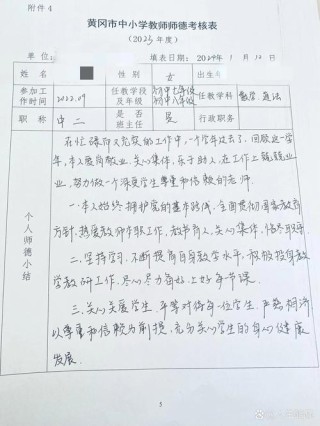 附件4
黄冈市中小学教师师德考核表
（2023年度）
单位： 填表日期：2024年1月12日
姓名 性别 女 出生年
参加工作时间 2022.09 任教学段及年级 初中七年级 初中八年级 任教学科 数学、道法
职称 中二 是否班主任 是 行政职务
个人师德小结
在忙碌而又充实的工作中，一个学年过去了，回顾这一学
年，本人爱岗敬业，关心集体，乐于助人，在工作上兢兢业
业，努力做一个深受学生尊重和信赖的老师。
一.本人始终拥护党的基本路线，全面贯彻国家教育
方针，热爱教师本职工作，教书育人，关心集体，
二.坚持学习，不断提高自身教学水平，积极投身教
学教研工作，尽心尽力备好上好每节课。
三.关心关爱学生，平等对待每一位学生，严慈相济，
以尊重和信赖为前提，充分关心学生的身心健康
发展。
5